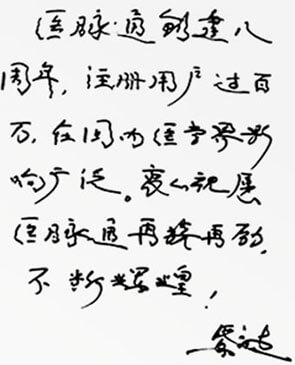 医脉通创建八
周年，注册用户过百
万，在国内医学界影
响广泛。衷心祝愿
医脉通再接再励，
不断辉煌！